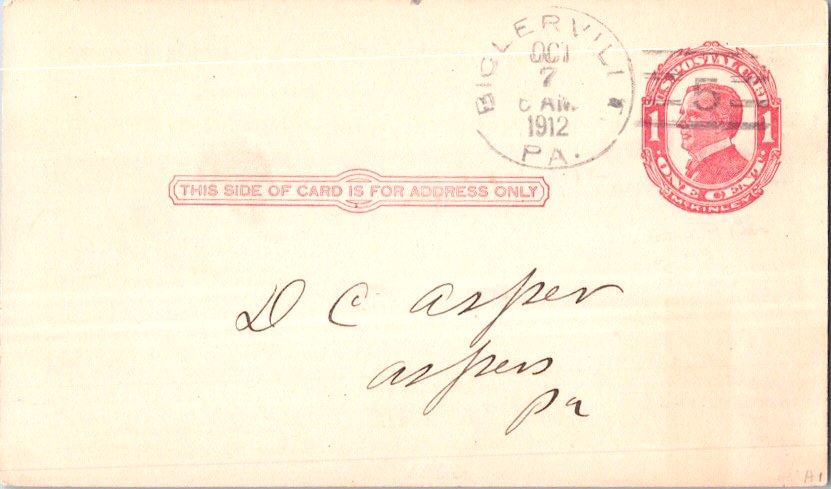 BIGLERVILLE
OCT
7
6 AM
1912
PA.
5
U.S. POSTAL CARD
1 1
ONE CENT
McKINLEY
THIS SIDE OF CARD IS FOR ADDRESS ONLY
D C Asper
aspers
Pa
A1